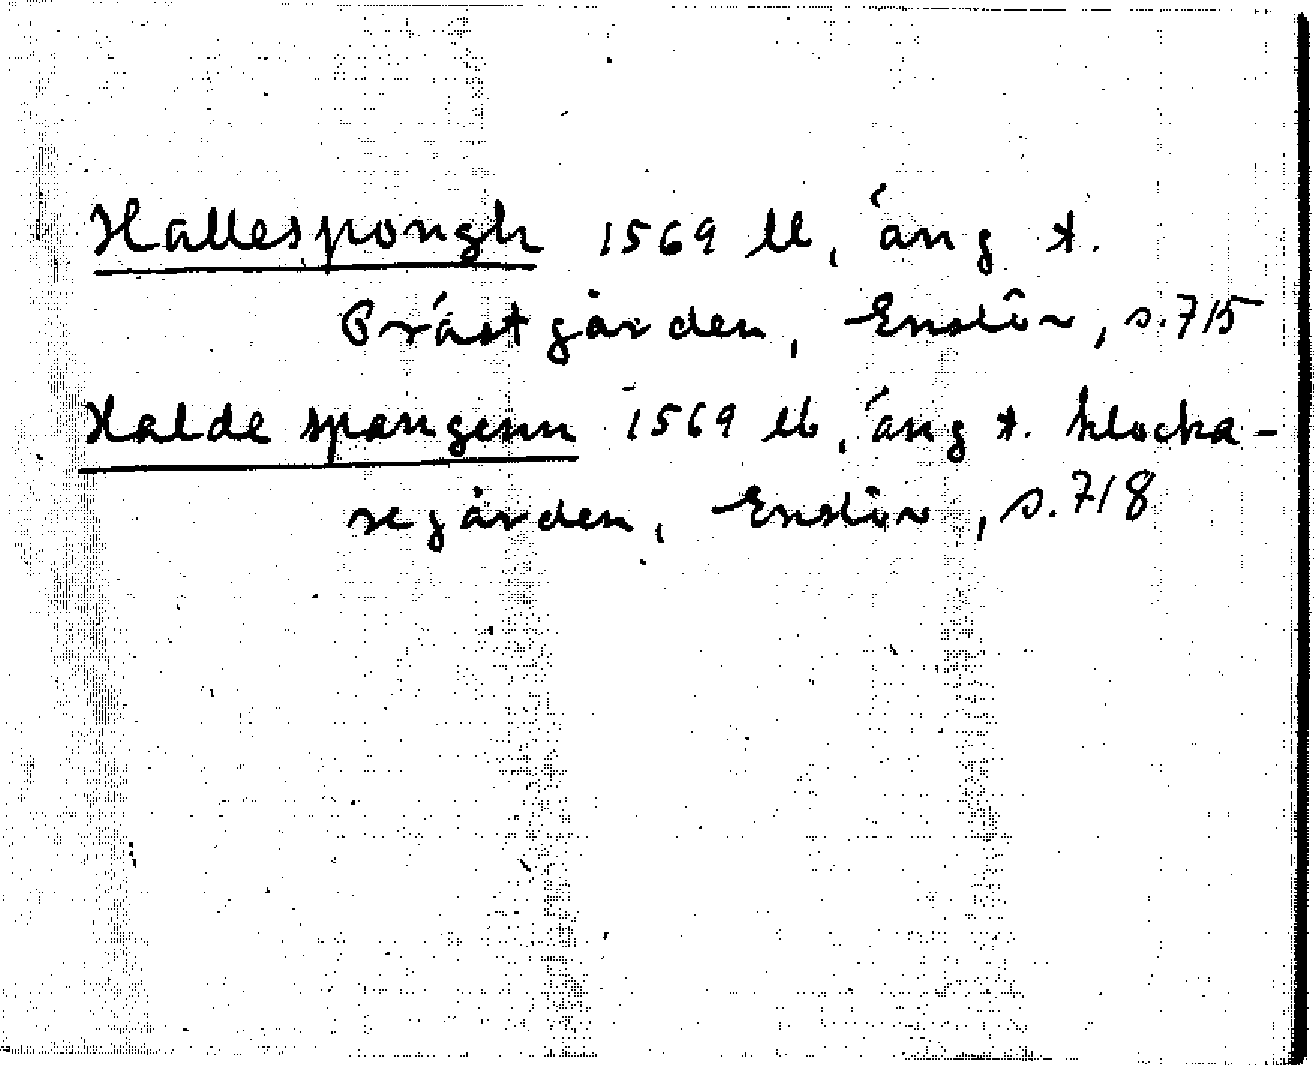 Hallespongh 1569 lb, äng t.
Prästgården, Enslöv, s. 715
Halde spangenn 1569 lb, äng t. klocka-
regården, Enslöv, s. 718